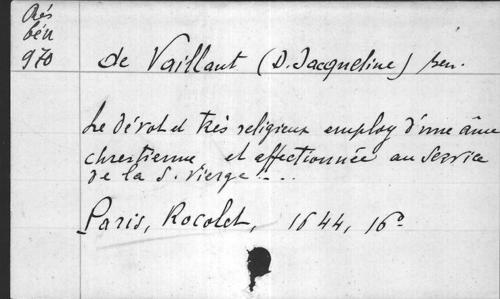 Rés
bén
970
de Vaillant (D. Jacqueline) ben.
Le dévot et très religieux employ d'une âme
chrestienne et affectionnée au service
de la S. Vierge....
Paris, Rocolet, 1644, 16º